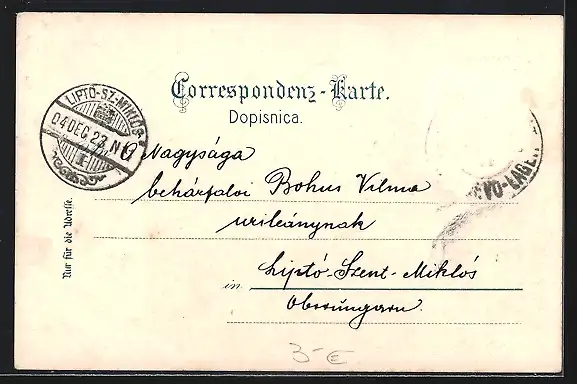 Correspondenz-Karte.
Dopisnica.
LIPTÓ-SZ-MIKLÓS
04 DEC 23 N
Nagysága
Bohus Vilma
urileánynak
in Liptó-Szent-Miklós
Oberungarn.
Nur für die Adresse.
3-€